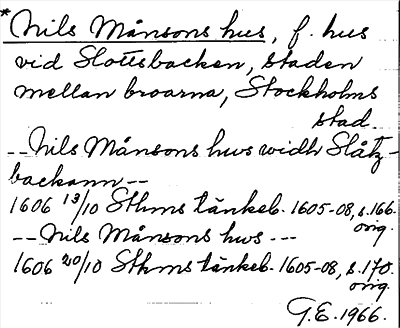 *Nils Månsons hus, f. hus
vid Slottsbacken, staden
mellan broarna, Stockholms
stad.
-- Nils Månsons hws widh Slåtz-
backann --
1606 13/10 Sthms tänkeb. 1605-08, s. 166.
orig.
-- Nils Månsons hws ---
1606 20/10 Sthms tänkeb. 1605-08, s. 170.
orig.
G.E. 1966.